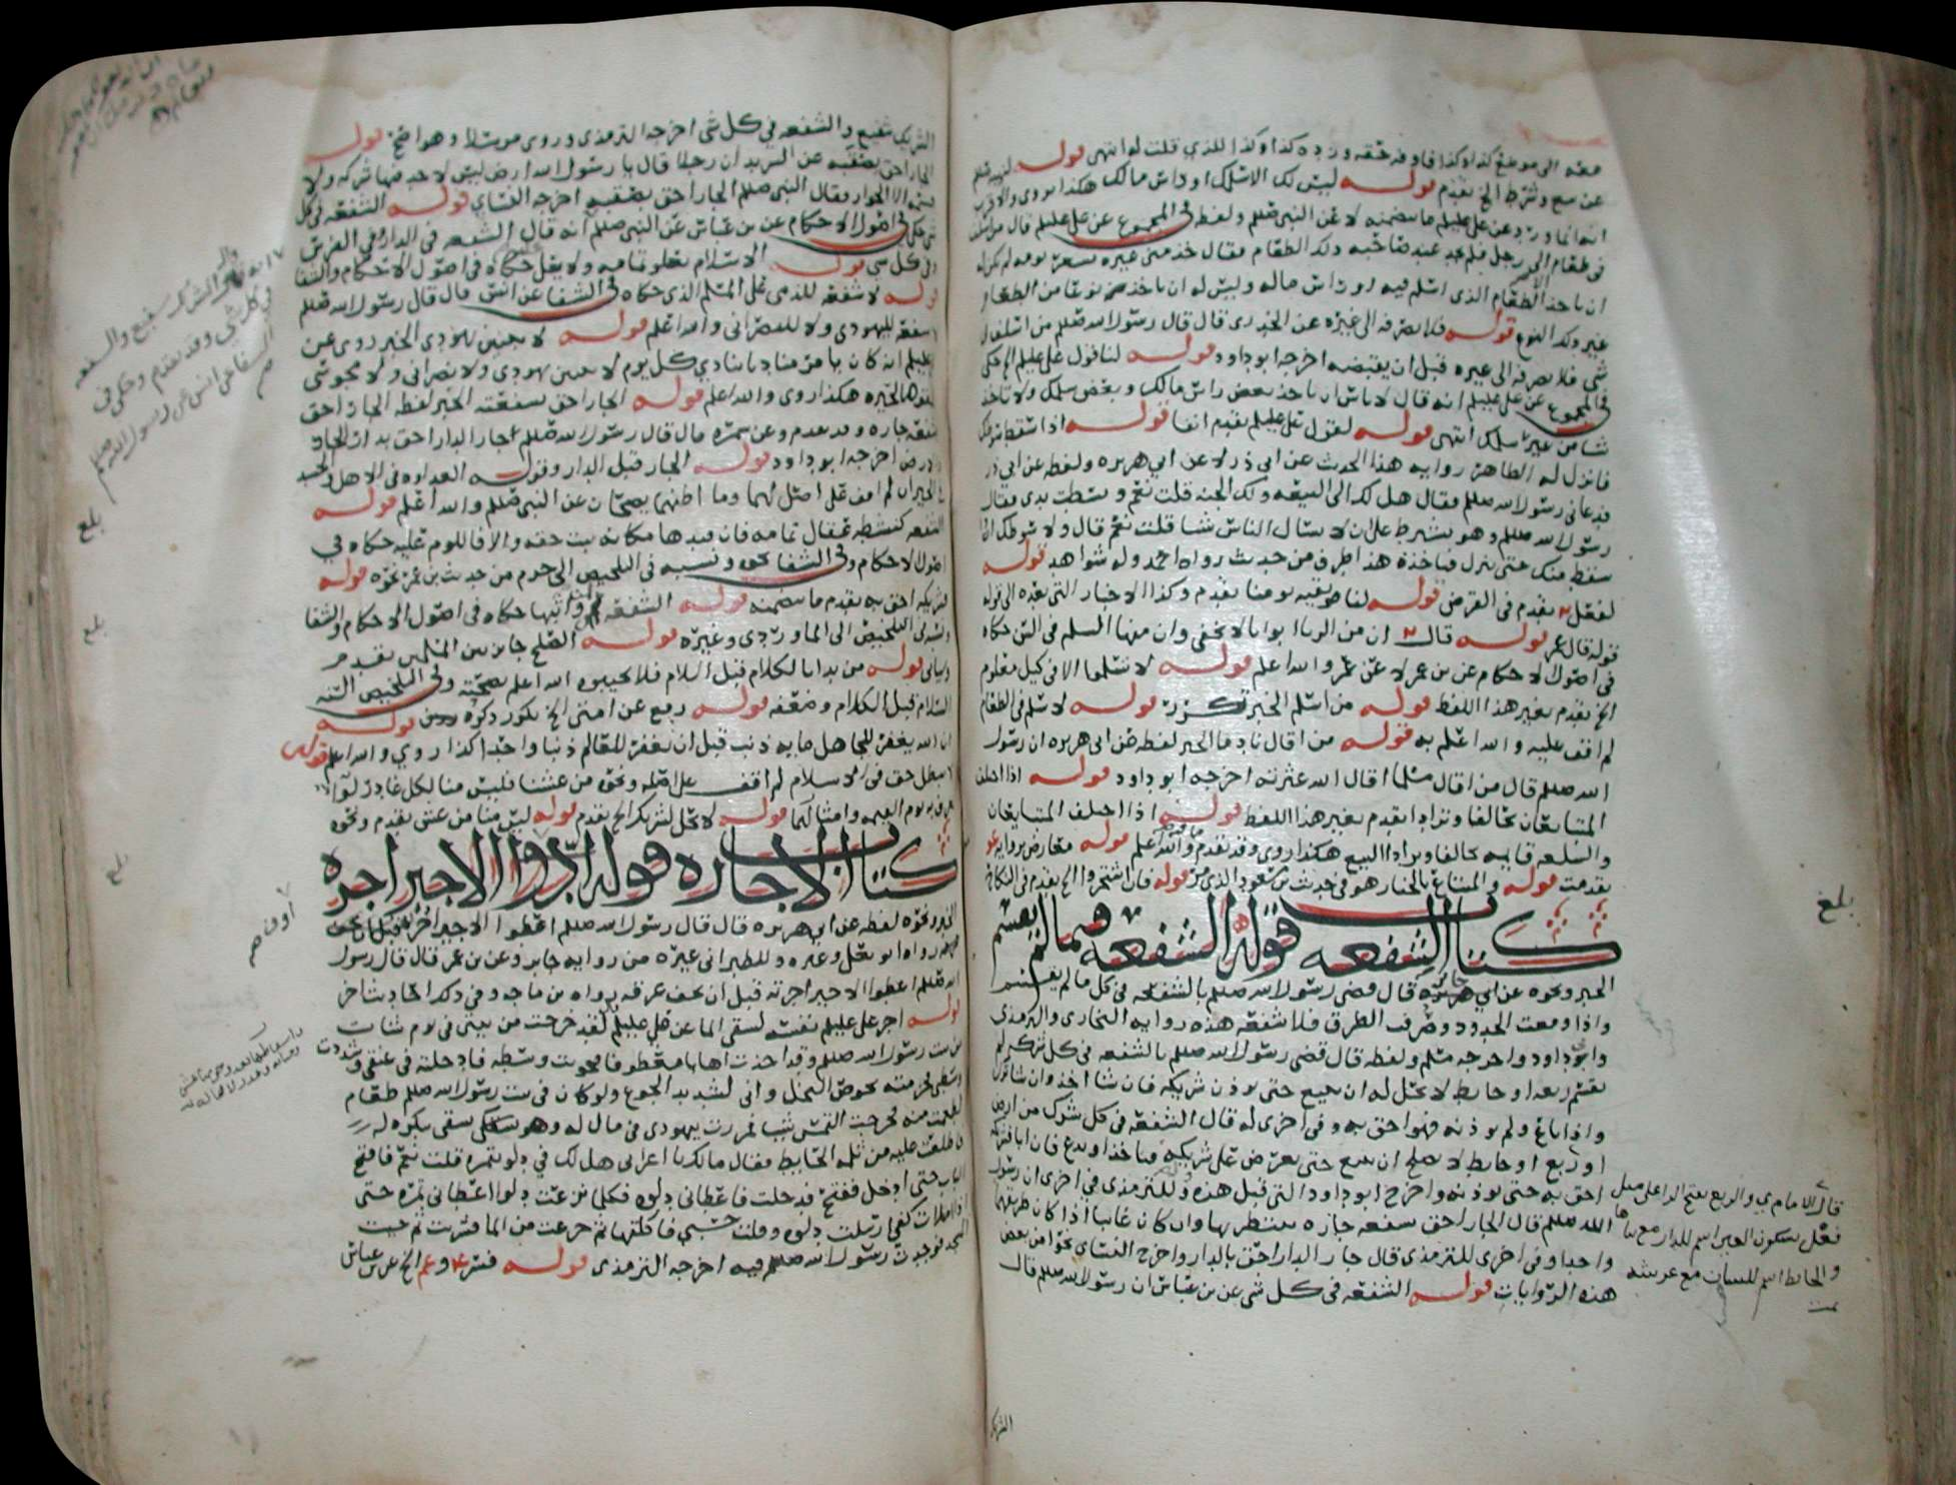 معه الى موضع كذا وكذا فاوفه حقه وزده كذا وكذا للذي قلت له انتهى قوله
عن بيع وشرط الخ تقدم قوله ليس لك الا سلمك او راس مالك هكذا روى
انه انما ورد عن علي عليلم ما يتضمنه لا عن النبي صللم ولفظه في المجموع عن علي عليلم قال من اسلف
في طعام الى رجل فلم يجد عند صاحبه ذلك الطعام فقال خذ مني غيره بسعر يومه لم يكن له
ان ياخذ الا الطعام الذي اسلم فيه او راس ماله وليس له ان ياخذ نوعا من الطعام
غير ذلك النوع قوله فلا يصرفه الى غيره عن الخدري قال قال رسول الله صللم من اسلف في
شي فلا يصرفه الى غيره قبل ان يقبضه اخرجه ابو داود قوله لنا قول علي عليلم الخ حكى
في المجموع عن علي عليلم انه قال لا باس ان ياخذ بعض راس مالك وبعض سلمك ولا تاخذ
شيا من غير سلمك انتهى قوله لقول علي عليلم تقدم انفا قوله اذا سقط
فانزل له الظاهر رواية هذا الحديث عن ابي ذر لا عن ابي هريره ولفظه عن ابي ذر
قد دعاني رسول الله صللم فقال هل لك الى البيعه ولك الجنه قلت نعم وبسطت يدي فقال
رسول الله صللم وهو يشترط علي ان لا تسال الناس شيا قلت نعم قال ولا سوطك ان
سقط منك حتى تنزل فتاخذه هذا طرف من حديث رواه احمد وله شواهد قوله
لفعل تقدم في القرض قوله لنا ما تقدم وكذا الاخبار التي بعده الى قوله
قوله قال عمر قوله قال ان من الربا ابوابا لا تخفى وان منها السلم في السن حكاه
في اصول الاحكام عن بن عمر لا عن عمر والله اعلم قوله لا تسلموا الا في كيل معلوم
الخ تقدم بغير هذا اللفظ قوله من اسلم الخبر تكرر قوله لا سلم في الطعام
لم اقف عليه والله اعلم به قوله من اقال نادما الخبر لفظه عن ابي هريره ان رسول
الله صللم قال من اقال مسلما اقال الله عثرته اخرجه ابو داود قوله اذا اختلف
المتبايعان تحالفا وترادا تقدم بغير هذا اللفظ قوله اذا اختلف المتبايعان
والسلعه قايمه تحالفا وترادا البيع هكذا روى وقد تقدم والله اعلم قوله معارض برواية
تقدمت قوله والمبتاع بالخيار هو في حديث بن مسعود الذي مر قوله فان اشتجروا الخ تقدم في النكاح
كتاب الشفعه قوله الشفعه فيما لم يقسم
الخبر ونحوه عن ابي هريره جابر قال قضى رسول الله صللم بالشفعه في كل ما لم يقسم
واذا وقعت الحدود وصرفت الطرق فلا شفعه هذه رواية البخاري والترمذي
وابو داود واخرجه مسلم ولفظه قال قضى رسول الله صللم بالشفعه في كل شرك لم
يقسم ربعه او حايط لا يحل له ان يبيع حتى يوذن شريكه فان شا اخذ وان شا ترك
واذا باع ولم يوذنه فهو احق به وفي اخرى له قال الشفعه في كل شرك من ارض
او ربع او حايط لا يصلح ان يبيع حتى يعرض على شريكه فياخذ او يدع فان ابا فشريكه
احق به حتى يوذنه واخرج ابو داود التي قبل هذه وللترمذي في اخرى ان رسول
الله صللم قال الجار احق بشفعه جاره ينتظر بها وان كان غايبا اذا كان طريقهما
واحدا وفي اخرى للترمذي قال جار الدار احق بالدار واخرج النسائي نحوا من بعض
هذه الروايات قوله الشفعه في كل شي عن بن عباس ان رسول الله صللم قال
بلغ
قال الامام ي والربع بفتح الراء على مثل
فعل بسكون العين اسم للدار مع بناها
والحايط اسم للبستان مع عريشه
تمت
الشريك
الشريك شفيع والشفعه في كل شي اخرجه الترمذي وروى مرسلا وهو اصح قوله
الجار احق بصقبه عن الشريد ان رجلا قال يا رسول الله ارض ليس لاحد فيها شركه ولا
قسمه الا الجوار فقال النبي صللم الجار احق بصقبه اخرجه النسائي قوله الشفعه في كل
شي حكى في اصول الاحكام عن بن عباس عن النبي صللم انه قال الشفعه في الدار وفي الفرس
وفي كل شي قوله الاسلام يعلو تمامه ولا يعلى حكاه في اصول الاحكام والشفا
قوله لا شفعه للذمي على المسلم الذي حكاه في الشفا عن انس قال قال رسول الله صللم
لا شفعه لليهودي ولا للنصراني والله اعلم قوله لا يجتمعن يهودي الخبر روى عن
عليلم انه كان يامر مناديا ينادي كل يوم لا يبيتن يهودي ولا نصراني ولا مجوسي
بالحيره هكذا روى والله اعلم قوله الجار احق بشفعته الخبر لفظه الجار احق
بشفعه جاره وقد تقدم وعن سمره قال قال رسول الله صللم جار الدار احق بدار الجار
والارض اخرجه ابو داود قوله الجار قبل الدار وقوله العداوه في الاهل والحسد
في الجيران لم اقف على اصل لهما وما اظنهما يصحان عن النبي صللم والله اعلم قوله
الشفعه كنشطه عقال تمامه فان قيدها مكانه ثبت حقه والا فاللوم عليه حكاه في
اصول الاحكام وفي الشفا نحوه ونسبه في التلخيص الى حزم من حديث بن عمر نحوه قوله
شريكه احق به تقدم ما يتضمنه قوله الشفعه لمن واثبها حكاه في اصول الاحكام والشفا
ونسبه في التلخيص الى الماوردي وغيره قوله الصلح جايز بين المسلمين تقدم
وياتي قوله من بدا بالكلام قبل السلام فلا تجيبوه الله اعلم بصحته وفي التلخيص
السلام قبل الكلام وضعفه قوله رفع عن امتي الخ تكرر ذكره قوله
ان الله يغفر للجاهل مايه ذنب قبل ان يغفر للعالم ذنبا واحدا كذا روي والله اعلم قوله
لا يبطل حق في الاسلام لم اقف على اصله ونحوه من غشنا فليس منا لكل غادر لوا
يعرف به يوم القيمه وامثالهما قوله لا تحل لشريك الخ تقدم قوله ليس منا من غش تقدم ونحوه
كتاب الاجاره قوله ادوا الاجير اجره
الخبر ونحوه لفظه عن ابي هريره قال قال رسول الله صللم اعطوا الاجير اجره قبل ان يجف
رواه ابو يعلى وغيره وللطبراني غيره من رواية جابر وعن بن عمر قال قال رسول
الله صللم اعطوا الاجير اجرته قبل ان يجف عرقه رواه بن ماجه وفي ذلك احاديث اخر
قوله اجر علي عليلم نفسه لسقي الما عن علي عليلم لقد خرجت من بيتي في يوم شات
من بيت رسول الله صللم وقد اخذت اهابا معطوفا فجوبت وسطه فادخلته في عنقي وشددت
وسطي فحزمته بخوص النخل واني لشديد الجوع ولو كان في بيت رسول الله صللم طعام
لطعمت منه فخرجت التمس شيا فمررت بيهودي في مال له وهو يسقي ببكره له
فاطلعت عليه من ثلمه الحايط فقال ما لك يا اعرابي هل لك في دلو بتمره قلت نعم فافتح
الباب حتى ادخل ففتح فدخلت فاعطاني دلوه فكلما نزعت دلوا اعطاني تمره حتى
اذا امتلات كفي ارسلت دلوه وقلت حسبي فاكلتها ثم جرعت من الما فشربت ثم جيت
المسجد فوجدت رسول الله صللم فيه اخرجه الترمذي قوله الخ عن بن عباس
بلغ
بلغ
بلغ